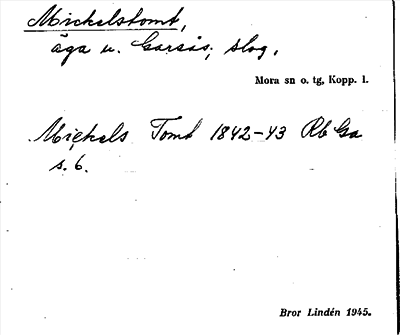 Mickelstomt,
äga u. Garsås, skog,
Mora sn o. tg, Kopp. l.
Mickels Tomt 1842-43 Rb Ga
s. 6.
Bror Lindén 1945.